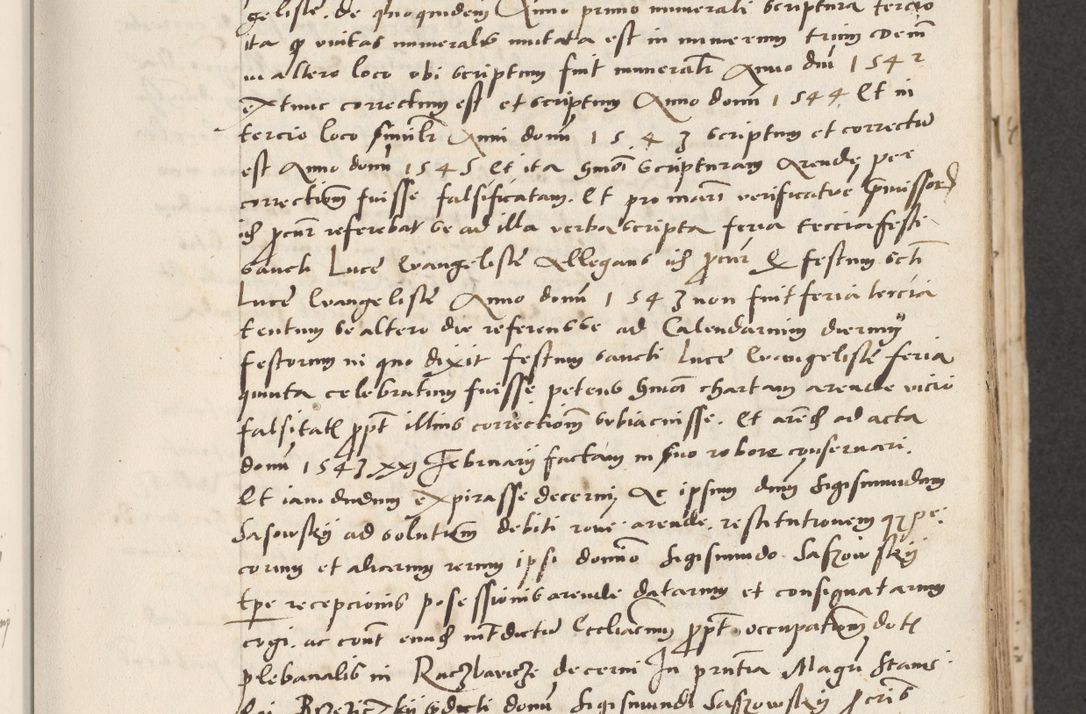 geliste. de quoquidem Anno primo numerali scriptura tercio
ita qp unitas numeralis mutata est in numerum trium Demu
in altero loco ubi scriptum fuit numerali Anno dni 1542
extunc correctum est et scriptum Anno domi 1544 Et in
tercio loco simili Anni domi 15.43 scriptum et correctu
est Anno domi 1545 Et ita scripturam Arendę per
correctiom fuisse falsificatam. Et pro verificatioe pmissor
ich pcur referebat se ad illa verba scripta feria tercia festi
sancti Luce Evangeliste Allegans ich pcur q festum scti
Luce Evangeliste Anno domi 1543 non fuit feria tercia
tentum se altero die referens se ad Calendarium dierum
festorum in quo dixit festum sancti Luce Evangeliste feria
quinta celebratum fuisse petens chartam arende vicio
falsitatis ppt illius correctiom subiacuisse. Et ad acta
domi 1543 xxj Februarij factam in suo robore conservari.
Et iam dudum expirasse decerni, Ac ipsum dnm Sigismundum
Sasowskij ad solutiom debiti arende. restitutionem
corum et aliarum rerum ipsi domino Sigismundo Saszowskij
tpe recepcionis posessionis arende datarum et consignatarum
cogi. ac ppt occupatiom dotis
plebanalis in Raczlavicze decerni In pntia Magci Stanis
lai domi Sigismundi Saszowskij